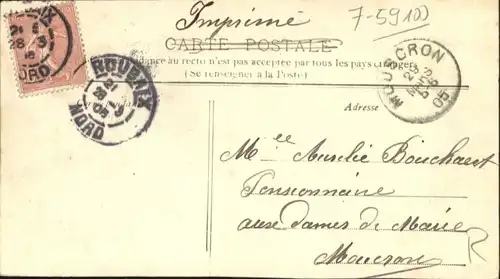 Imprimé
7-59100
CARTE POSTALE
au recto n'est pas acceptée par tous les pays étrangers
(Se renseigner à la Poste)
ROUBAIX
NORD
ROUBAIX
NORD
MOUSCRON
05
Adresse
Melle Aurélie Bouchaert
Pensionnaire
aux dames de Marie
Moucron
R